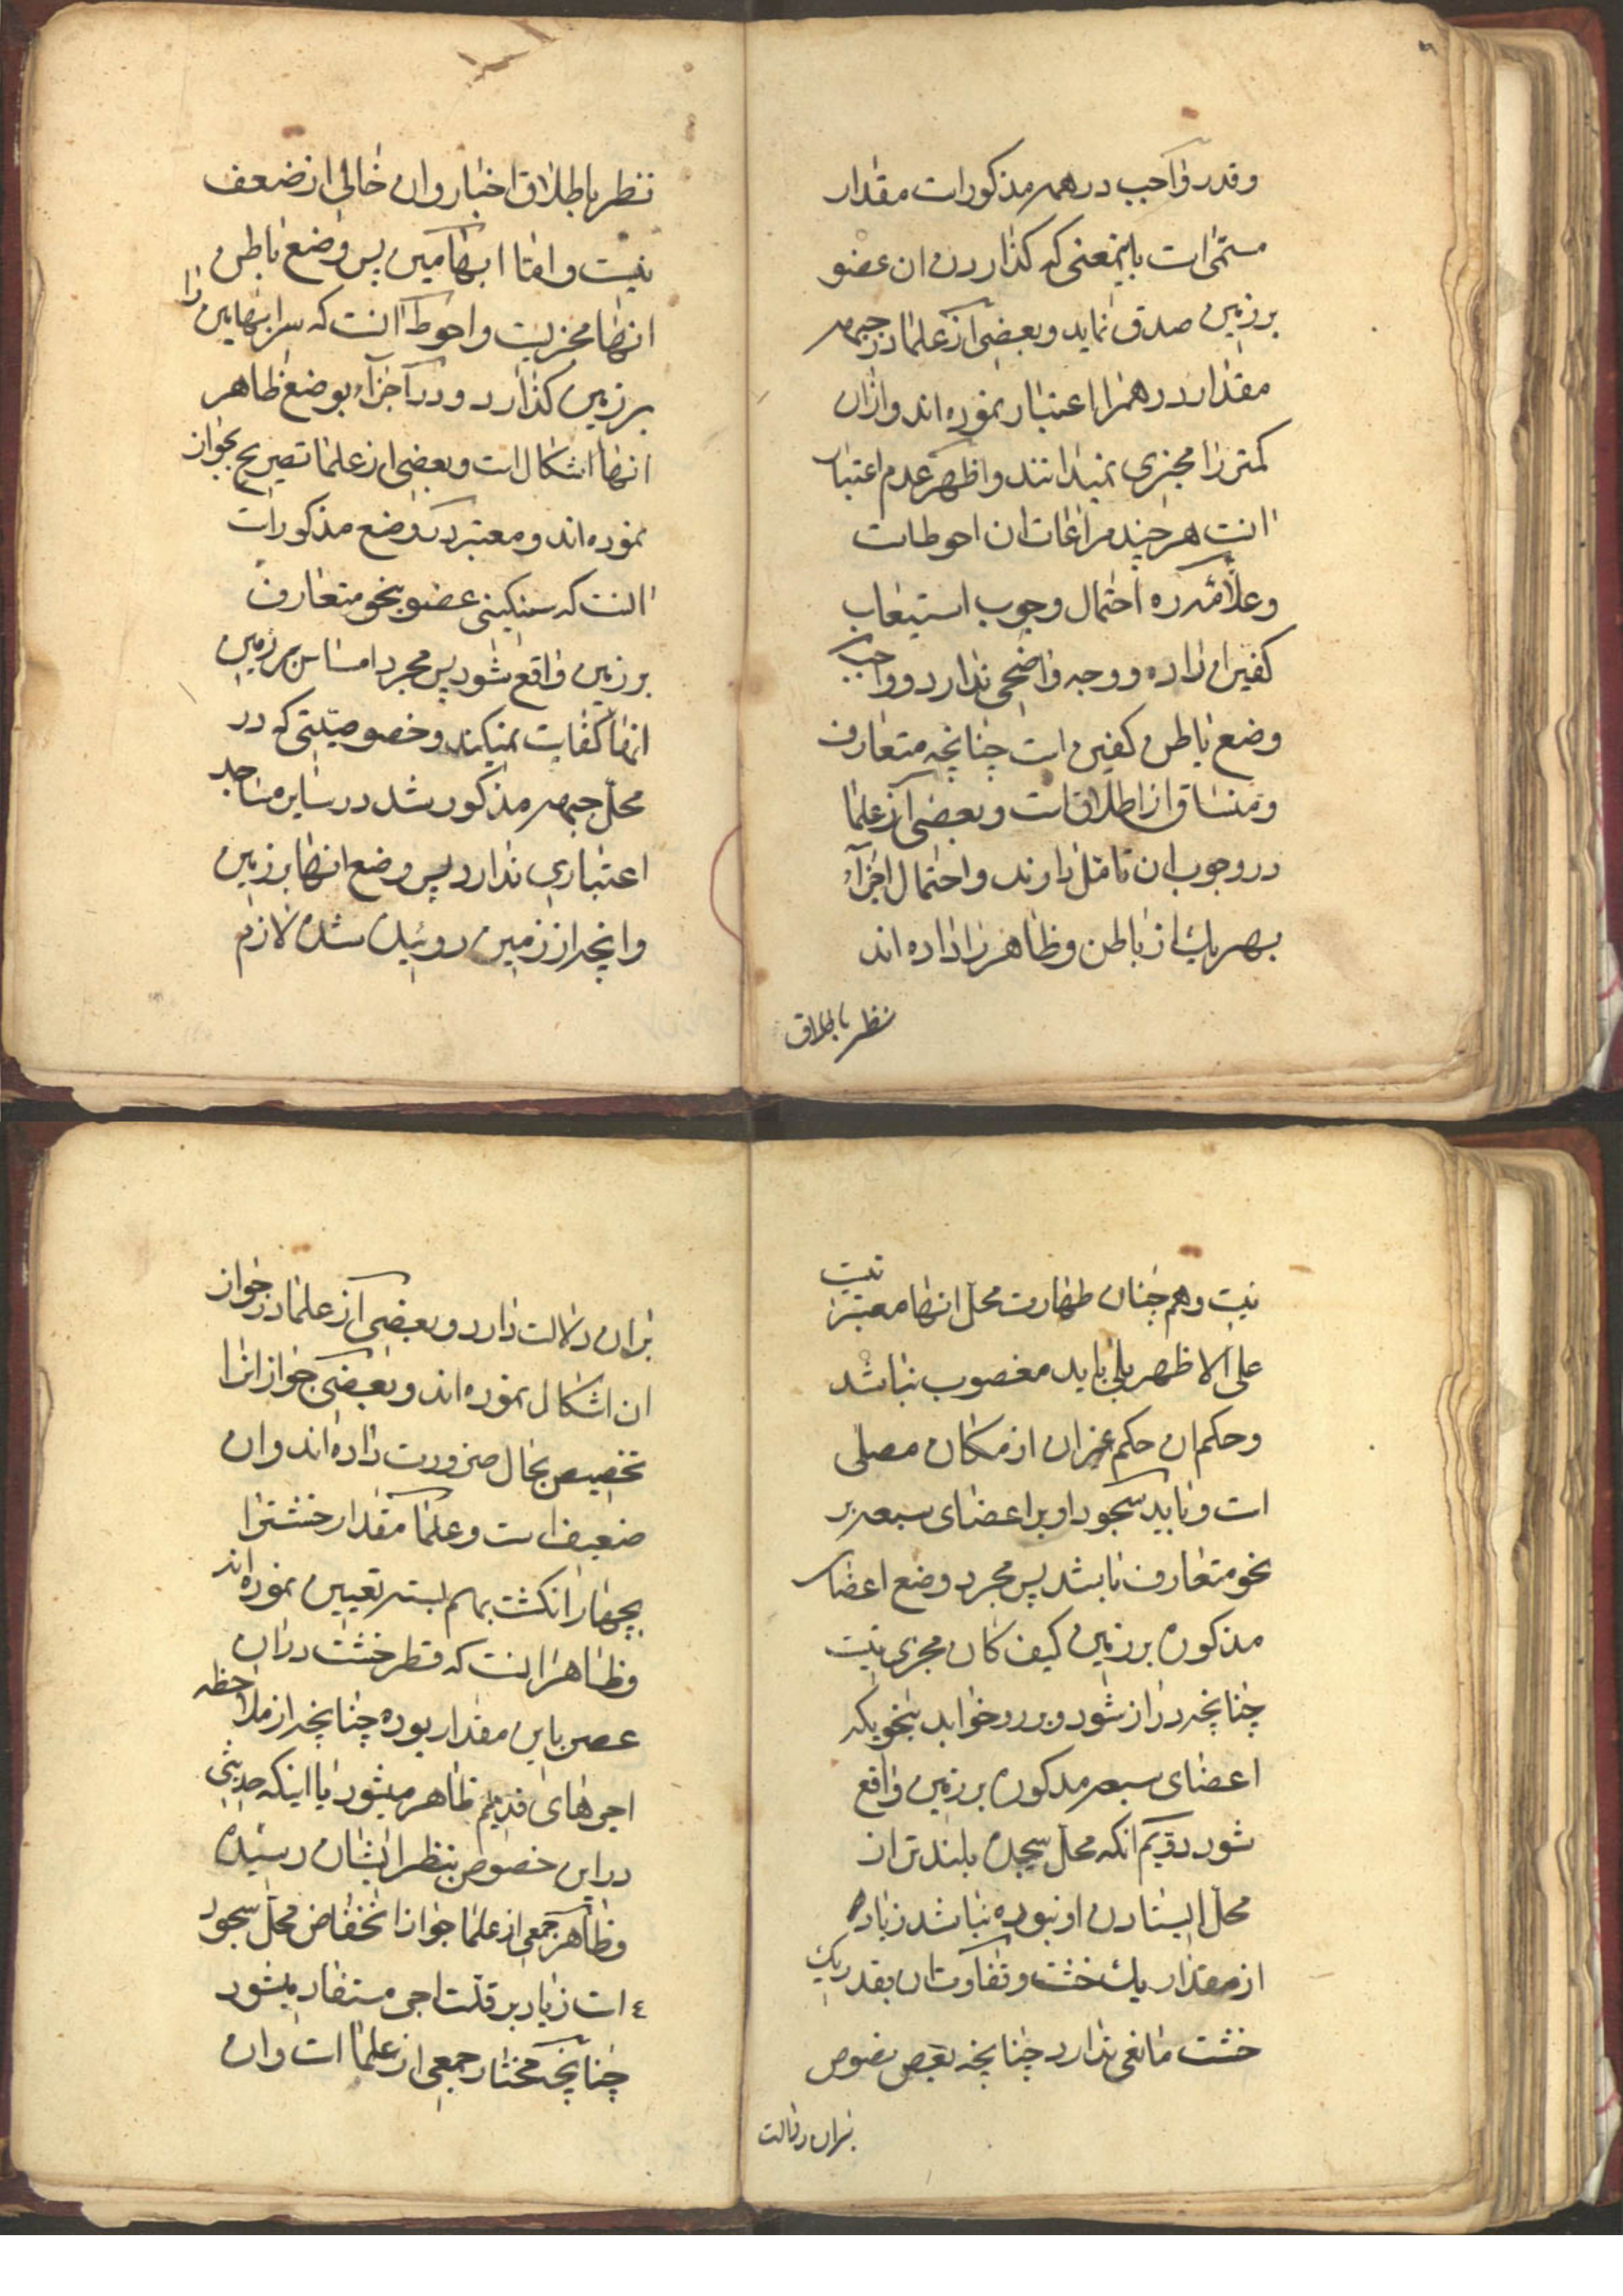 وقدر واجب در همه مذکورات مقدار
مسمّی است باینمعنی که کذاردن ان عضو
بر زمین صدق نماید و بعضی از علما در جبهه
مقدار درهم را اعتبار نموده اند و از ان
کمتر را مجزی نمیدانند و اظهر عدم اعتبار
انست هر چند مراعات ان احوط است
و علامه ره احتمال وجوب استیعاب
کفین را داده و وجه واضحی ندارد و واجب
وضع باطن کفین است چنانچه متعارف
و منساق از اطلاقات و بعضی از علما
در وجوب ان تامّل دارند و احتمال اجزآء
بهر یك از باطن و ظاهر را داده اند
نظر باطلاق
نظر باطلاق اخبار و ان خالی از ضعف
نیست و امّا ابهامین پس وضع باطن
انها مجزیست و احوط انست که سر ابهامین را
بر زمین کذارد و در اجزآء بوضع ظاهر
انها اشکال است و بعضی از علما تصریح بجواز
نموده اند و معتبر در وضع مذکورات
انست که سنکینی عضو بنحو متعارف
بر زمین واقع شود پس مجرد امساس بر زمین
انها کفایت نمیکند و خصوصیّتی که در
محلّ جبهه مذکور شد در سایر مساجد
اعتباری ندارد پس وضع انها بر زمین
و انچه از زمین روئیده شده لازم
نیست و هم چنان طهارت محل انها معتبر نیست
علی الاظهر بلی باید مغصوب نباشد
و حکم ان حکم غیر ان از مکان مصلی
است و باید سجود او بر اعضای سبعه بر
نحو متعارف باشد پس مجرد وضع اعضاء
مذکوره بر زمین کیف کان مجزی نیست
چنانچه دراز شود و برو خوابد بنحویکه
اعضای سبعه مذکوره بر زمین واقع
شود دویّم انکه محلّ سجده بلندتر از
محلّ ایستادن او نبوده نباشد زیاده
از مقدار یك خشت و تفاوت ان بقدر یك
خشت مانعی ندارد چنانچه بعض نصوص
بر ان دلالت
بر ان دلالت دارد و بعضی از علما در جواز
ان اشکال نموده اند و بعضی جواز انرا
تخصیص بحال ضرورت داده اند و ان
ضعیف است و علما مقدار خشت را
بچهار انکشت بهم بسته تعیین نموده اند
و ظاهر انست که قطر خشت در ان
عصر باین مقدار بوده چنانچه از ملاحظه
اجرهای قدیم ظاهر میشود یا اینکه حدیثی
در این خصوص بنظر ایشان رسیده
و ظاهر جمعی از علما جواز انخفاض محل سجود
است زیاد بر قدر اجر مستفاد میشود
چنانچه مختار جمعی از علما است و ان